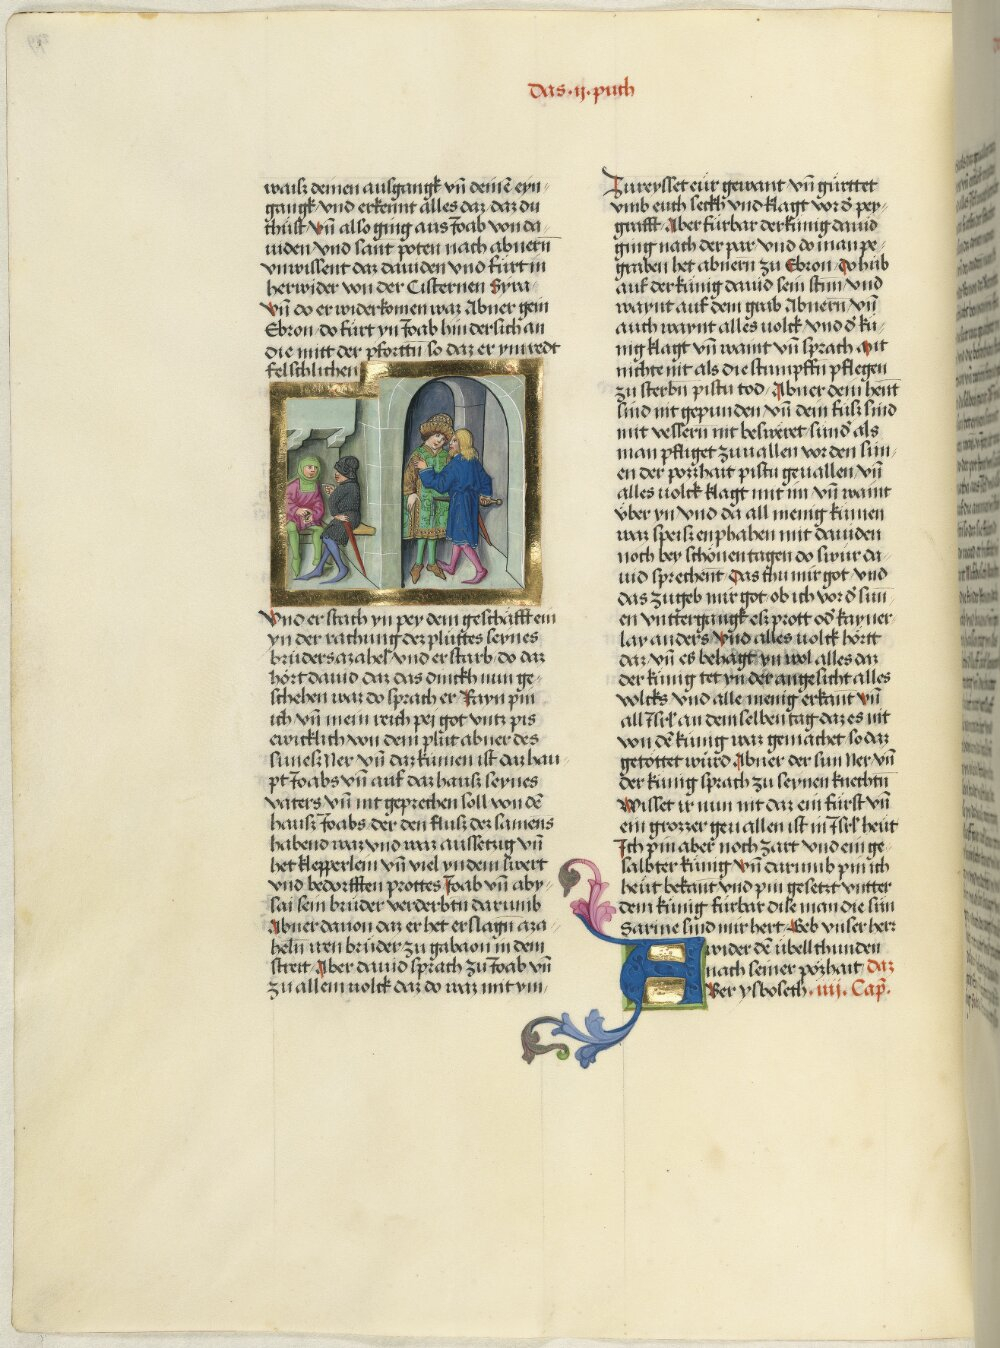 Das · ij · puch
waist deinen ausgangk vn̄ deinē eyn-
gangk vnd erkennt alles daz daz du
thust Vn̄ also ging aus Joab von da-
uiden vnd sant poten nach abnern
vnwissent daz dauiden vnd fürt in
herwider von der Cisternen Syra
Vn̄ do er widerkomen waz Abner gein
Ebron do fürt yn Joab hindersich an
die mitt der pfortn̄ so daz er ym redt
felschlichen
Vnd er stach yn pey dem geschäfft ein
yn der rachung dez plüttes seynes
bruders azahel vnd er starb do daz
hört dauid daz das dinckh nun ge-
schehen waz do sprach er Rayn pin
ich vn̄ mein reich pej got vntz pis
ewicklich von dem plut abner des
sunes Ner vn̄ daz kumen ist daz hau-
pt Joabs vn̄ auf daz haus seynes
vaters vn̄ nit geprechen soll von dē
haus Joabs der den flus dez samens
habend waz vnd waz aussetzig vn̄
het klepperlein vn̄ viel yn dem swert
vnd bedorfften prottes Joab vn̄ aby-
sai sein bruder verderbtn darumb
Abner dauon daz er het erslagn aza-
heln iren bruder zu gabaon in dem
streit Aber dauid sprach zu Joab vn̄
zu allem volck daz do waz mit ym
Zureysset eur gewant vn̄ gürttet
vmb euch seckh vnd klagt vor d̄ pey-
grafft Aber fürbar der künig dauid
ging nach der par vnd do man pe-
graben het abnern zu Ebron Do hub
auf der künig dauid sein stim vnd
waynt auf dem grab Abnern vn̄
auch waynt alles volck vnd d̄ kü-
nig klagt vn̄ waint vn̄ sprach Mit
nichte nit als die stumpffn pflegen
zu sterbn pistu tod Abner dein hent
sind nit gepunden vn̄ dein füs sind
mit vessern nit besweret sund̄ als
man pfliget zu uallen vor den sün-
en der pozhait pistu geuallen vn̄
alles volck klagt mit im vn̄ waint
über yn vnd da all menig kumen
waz speis enphahen mit dauiden
noch bey schönen tagen do swur da-
uid sprechent Das thu mir got vnd
das zugeb mir got ob ich vor d̄ sun-
en vntergangk ess prott od̄ kayner-
lay anders Vnd alles volck hört
daz vn̄ es behagt yn wol alles daz
der künig tet yn der angesicht alles
volcks vnd alle menig erkant vn̄
all Isrl an dem selben tag daz es nit
von dē künig waz gemachet so daz
getöttet würd Abner der sun Ner vn̄
der künig sprach zu seynen knechtn
Wisset ir nun nit daz ein fürst vn̄
ein grozzer geuallen ist in Isrl heut
Ich pin aber noch zart vnd ein ge-
salbter künig Vn̄ darumb pin ich
heut bekant vnd pin gesetzt vntter
dem künig fürbar dise man die sün
Sarvie sind mir hert Geb vnser herr
wider dē übell thunden
nach seiner pozhait Daz
Aber ysboseth · iiij · Cap̄.